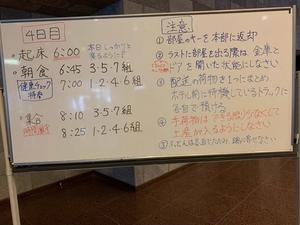 4日目
・起床 6:00
・朝食 6:45 3・5・7組
7:00 1・2・4・6組
健康チェック
・集合 8:10 3・5・7組
8:25 1・2・4・6組
注意
① 部屋のキーを本部に返却
② ラストに部屋を出る際は、金庫と
ドアを開いた状態にしなさい
③ 配送の荷物を1つにまとめ
ホテル前に待機しているトラックに
各自で預ける
④ 手荷物はできる限り少なくして
土産が入るようにしなさい